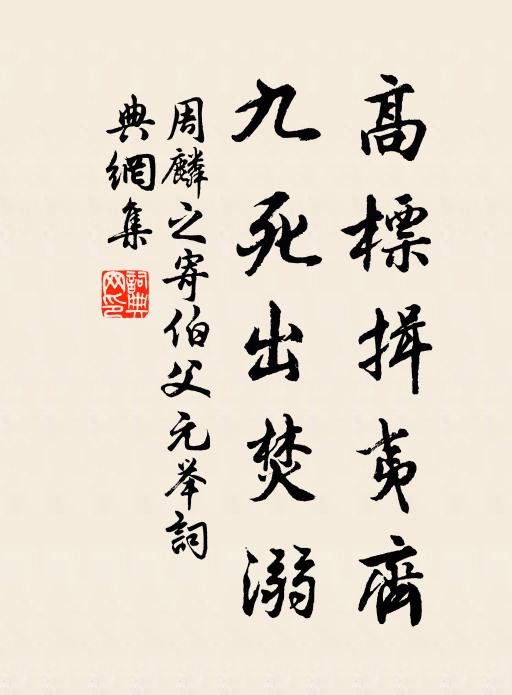 高標揖夷齊
九死出焚溺
周麟之寄伯父元举詞
典網集
詞典
网印